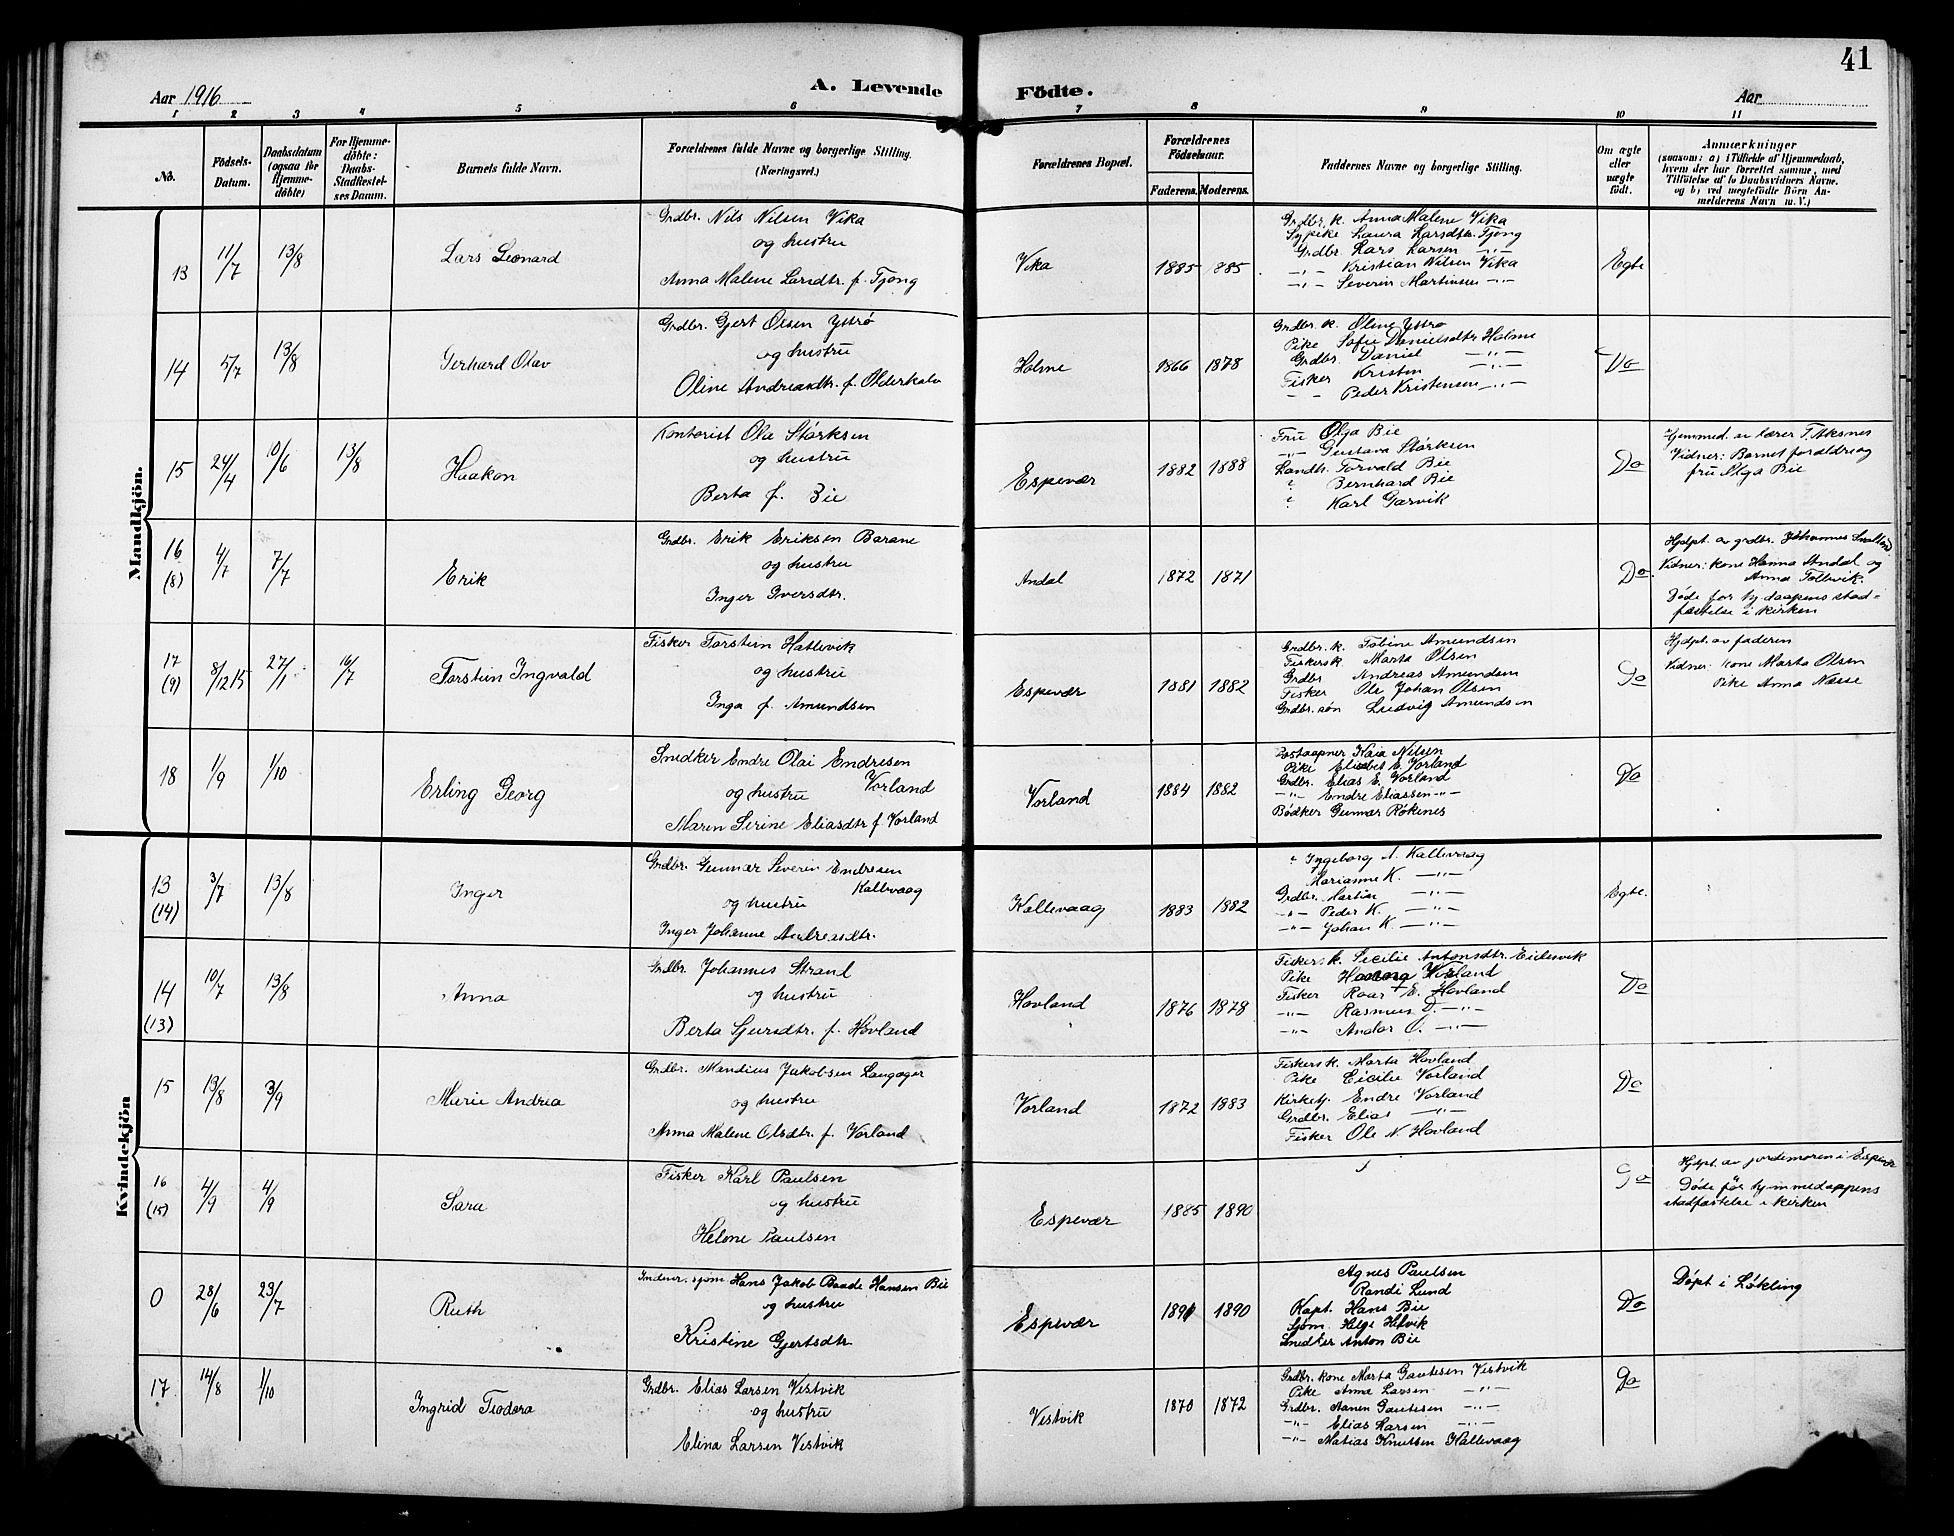 41
Aar 1916
A. Levende Födte.
Aar
1 2 3 4 5 6 7 8 9 10 11
No.
Födsels-
Datum.
Daabsdatum
(ogsaa for
Hjemme-
döbte)
For Hjemme-
döbte:
Daabs-
Stadfæstel-
ses Datum.
Barnets fulde Navn.
Forældrenes fulde Navne og borgerlige Stilling.
(Næringsvei.)
Forældrenes Bopæl.
Forældrenes
Födselsaar.
Faderens. Moderens.
Faddernes Navne og borgerlige Stilling.
Om ægte
eller
uægte
födt.
Anmærkninger
(saasom: a) i Tilfælde af Hjemmedaab,
hvem der har forrettet samme, med
Tilföielse af to Daabsvidners Navne.
og b) ved uegtefödte Börn An-
melderens Navn m. V.)
Mandkjön.
13 11/7 13/8 Lars Leonard
Grdbr. Nils Nilsen Vika
og hustru
Anna Malene Larsdtr. f. Tjong
Vika 1885 885
Grdbr. k. Anna Malene Vika
Sypike Laura Larsdtr. Tjong
Grdbr. Lars Larsen -"-
-"- Kristian Nilsen Vika
-"- Severin Martinsen -"-
Egte
14 5/7 13/8 Gerhard Olav
Grdbr. Gjert Olsen Ystrø
og hustru
Oline Andreasdtr. f. Olderkalv
Holme 1866 1878
Grdbr. k. Oline Ystrø
Pike Sofie Danielsdtr Holme
Grdbr. Daniel -"-
Fisker Kristen -"-
- - Peder Kristensen -"-
Do
15 24/4 10/6 13/8 Haakon
Kontorist Ola Størksen
og hustru
Berta f. Bie
Espevær 1882 1888
Fru Olga Bie
-"- Gustava Størksen
Landh. Torvald Bie
" Bernhard Bie
" Karl Garvik
Do
Hjemmed. av lærer T. Aksnes
Vidner: Barnet forældre og
fru Olga Bie
16 (8) 4/7 7/7 Erik
Grdbr. Erik Eriksen Barane
og hustru
Inger Iversdtr.
Andal 1872 1871
Do
Hjdpt. av grdbr. Johannes
Vidner: kone Hanna Andal og
Anna Follevik.
Døde før hj. daapens stad-
fæstelse i kirken
17 (9) 8/12 15 27/1 16/7 Torstein Ingvald
Fisker Torstein Hatlevik
og hustru
Inga f. Amundsen
Espevær 1881 1882
Grdbr. k. Tobine Amundsen
Fiskersk. Marta Olsen
Grdbr Andreas Amundsen
Fisker Ole Johan Olsen
Grdbr. søn Ludvig Amundsen
Do
Hjdpt. av faderen
Vidner: kone Marta Olsen
Pike Anna Næsse
18 1/9 1/10 Erling Georg
Snedker Endre Olai Endresen
Vorland
og hustru
Maren Serine Eliasdtr f Vorland
Vorland 1884 1882
Postaapner Kaia Nilsen
Pike Elisabet E. Vorland
Grdbr. Elias E. Vorland
-"- Endre Eliassen -"-
Bødker Gunnar Røkenes
Do
Kvindekjön
13 (14) 3/7 13/8 Inger
Grdbr. Gunnar Severin Endresen
Kallevaag
og hustru
Inger Johanne Andreasdtr.
Kallevaag 1883 1882
" Ingeborg N. Kallevaag
Marianne K. -"-
Grdbr. Martin -"-
-"- Peder K. -"-
-"- Johan K. -"-
Egte.
14 (13) 10/7 13/8 Anna
Grdbr. Johannes Strand
og hustru
Berta Sjursdtr. f. Hovland
Hovland 1876 1878
Fiskersk. Secilie Antonsdtr. Eidesvik
Pike Vorland
Fisker Roar E. Hovland
-"- Rasmus D. -"-
-"- Andor O. -"-
Do
15 13/8 3/9 Marie Andrea
Grdbr. Mandius Jakobsen Langager
og hustru
Anna Malene Olsdtr. f. Vorland
Vorland 1872 1883
Fiskersk. Marta Hovland
Pike Cicilie Vorland
Kirketj. Endre Vorland
Grdbr. Elias -"-
Fisker Ole N. Hovland
Do
16 (15) 4/9 4/9 Sara
Fisker Karl Paulsen
og hustru
Helene Paulsen
Espevær 1885 1890
Do
Hjdpt. av jordemoren i Espevær
Døde før hjemmedaapens
stadfæstelse i kirken
0 28/6 23/7 Ruth
sjøm. Hans Jakob Baade Hansen Bie
og hustru
Kristine Gjertsdtr.
Espevær 1891 1890
Agnes Paulsen
Randi Lund
Kapt. Hans Bie
Sjøm. Helge Helvik
Snedker Anton Bie
Do
Døpt i Løkling
17 14/8 1/10 Ingrid Teodora
Grdbr. Elias Larsen Vestvik
og hustru
Elina Larsen Vestvik
Vestvik 1870 1872
Grdbr. kone Marta Gautesen Vestvik
Pike Anna Larsen -"-
Grdbr. Aanen Gautesen -"-
-"- Elias Larsen -"-
-"- Matias Knutsen Kallevaag
Do